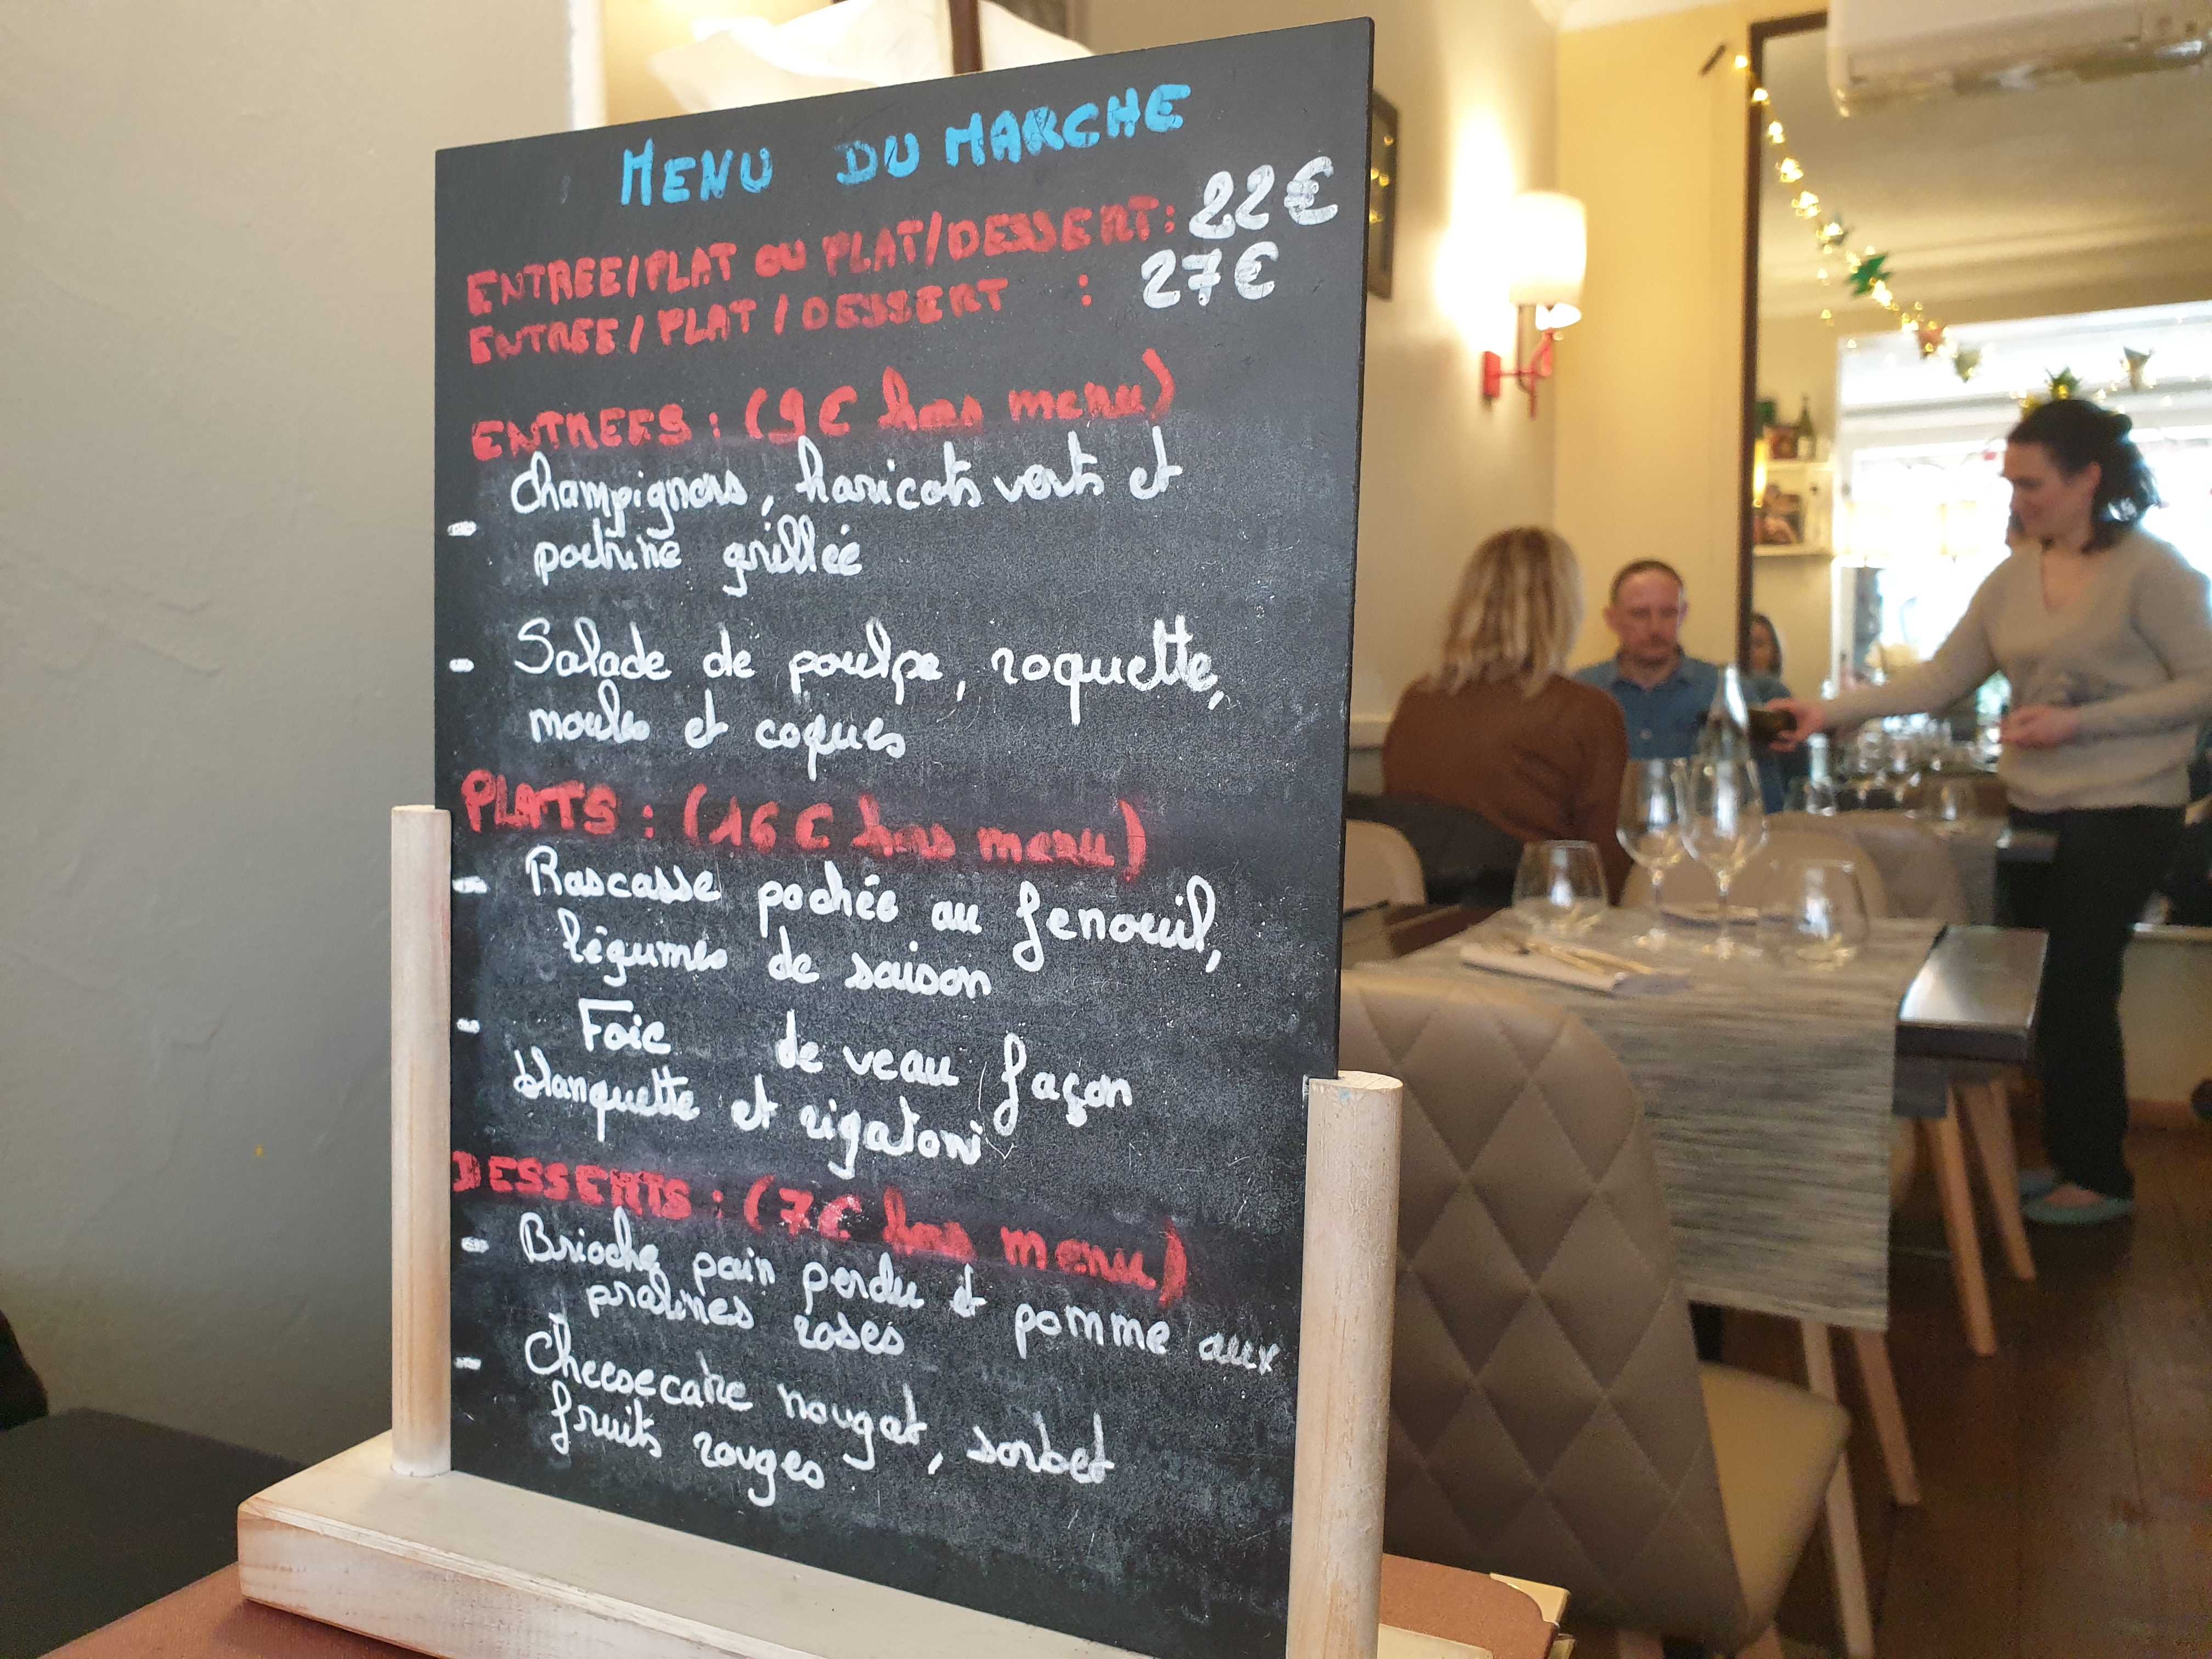 MENU DU MARCHE
ENTREE/PLAT OU PLAT/DESSERT: 22€
ENTREE/PLAT/DESSERT : 27€
ENTREES: (9€ hors menu)
- Champignons, haricots verts et
poitrine grillée
- Salade de poulpe, roquette,
moules et coques
PLATS: (16€ hors menu)
- Rascasse pochée au fenouil,
légumes de saison
- Foie de veau façon
blanquette et rigatoni
DESSERTS: (7€ hors menu)
- Brioche pain perdu et pomme aux
pralines roses
- Cheesecake nougat, sorbet
fruits rouges